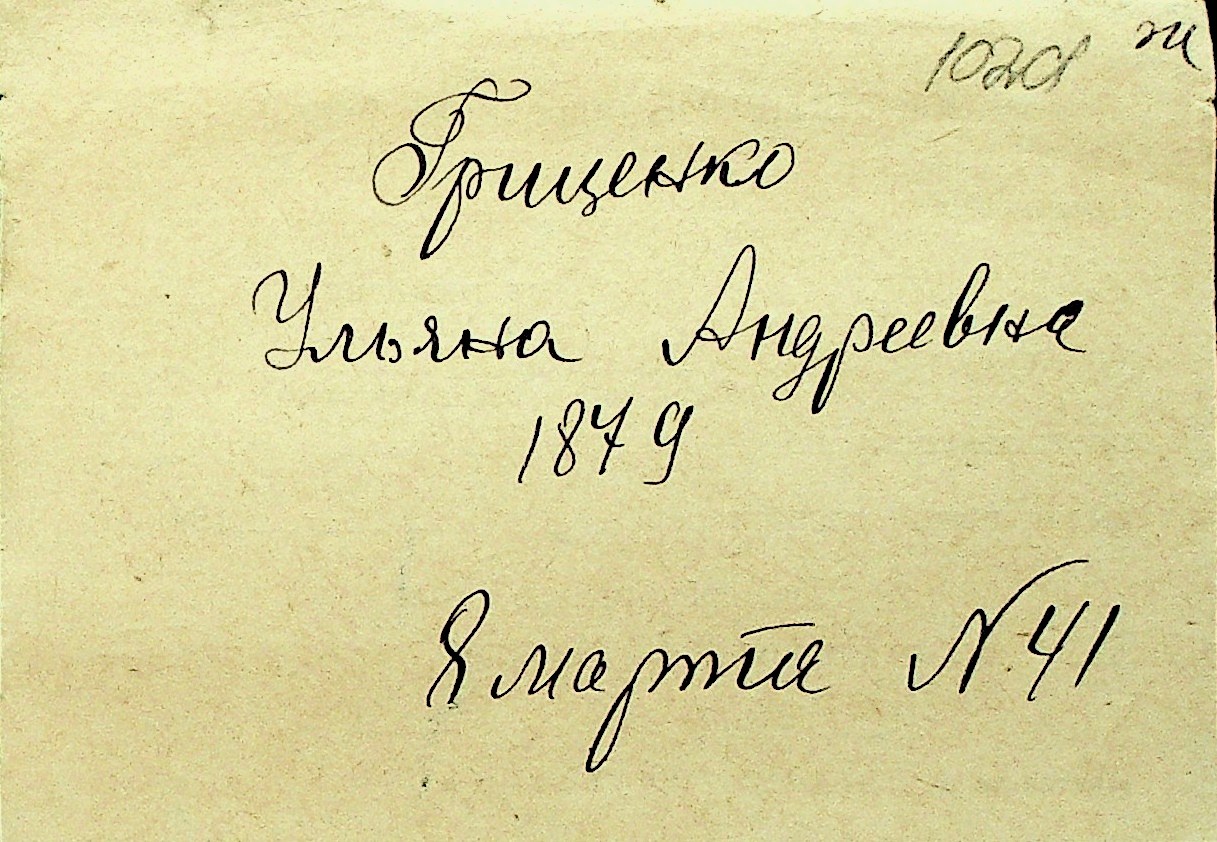 Гриценко
Ульяна Андреевна
1879
8 марта N 41